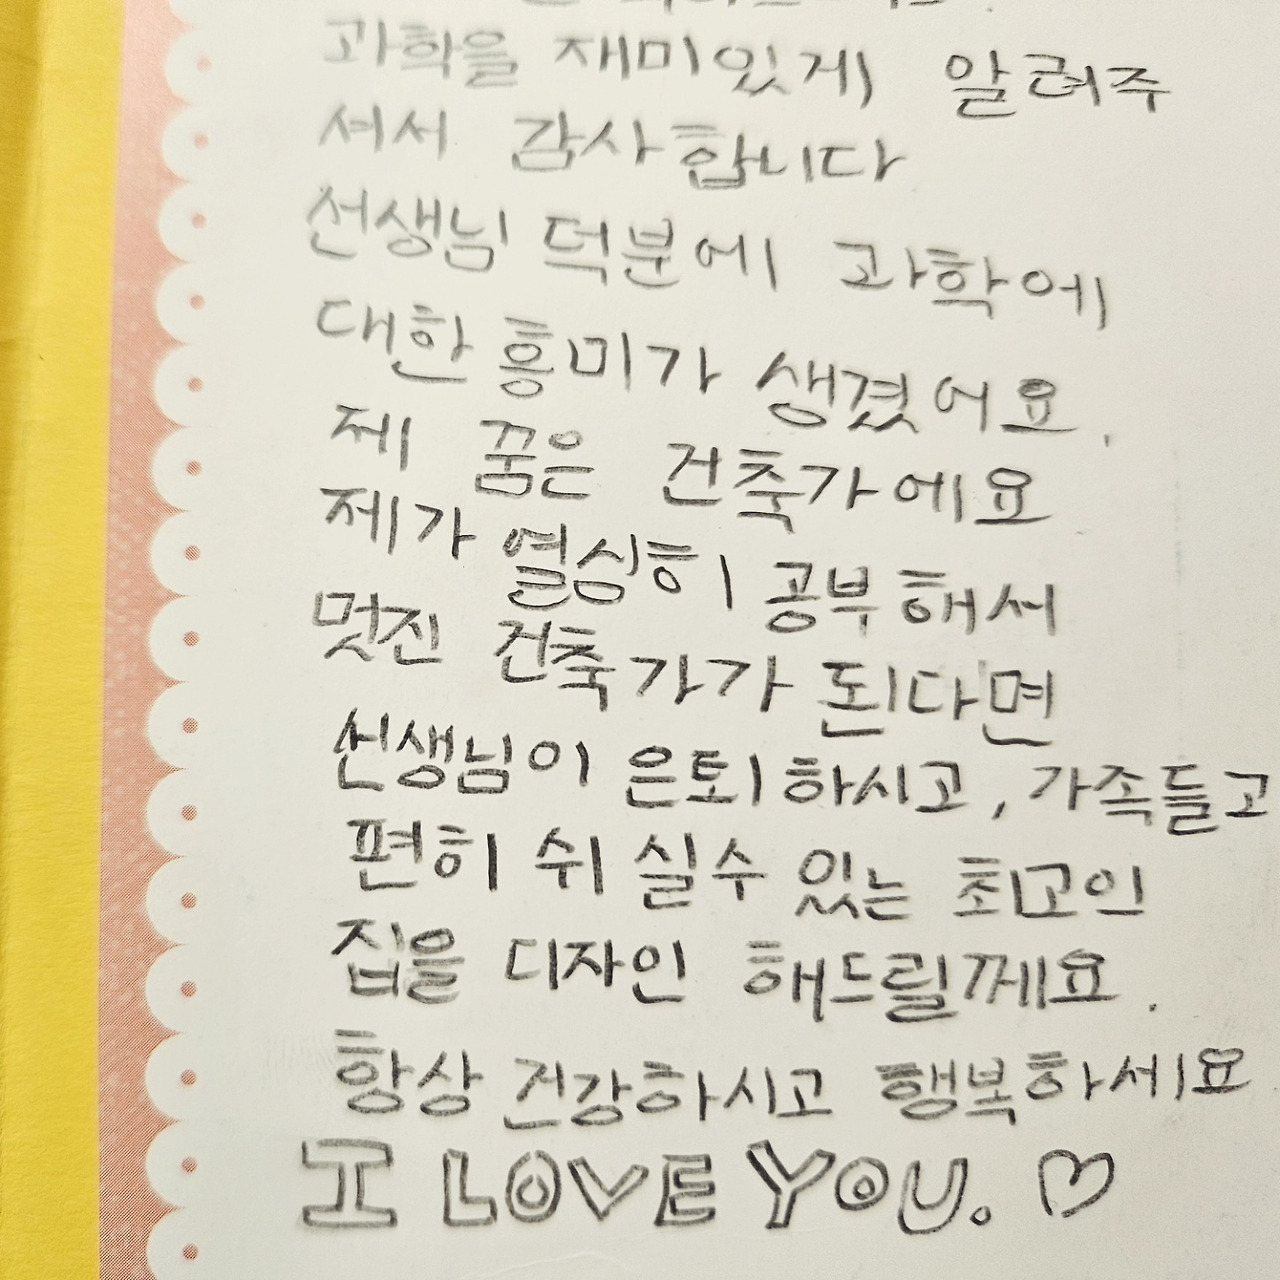 과학을 재미있게 알려주
셔서 감사합니다
선생님 덕분에 과학에
대한 흥미가 생겼어요.
제 꿈은 건축가에요
제가 열심히 공부해서
멋진 건축가가 된다면
선생님이 은퇴하시고, 가족들고
편히 쉬실수 있는 최고인
집을 디자인 해드릴께요.
항상 건강하시고 행복하세요
I LOVE YOU. ♡